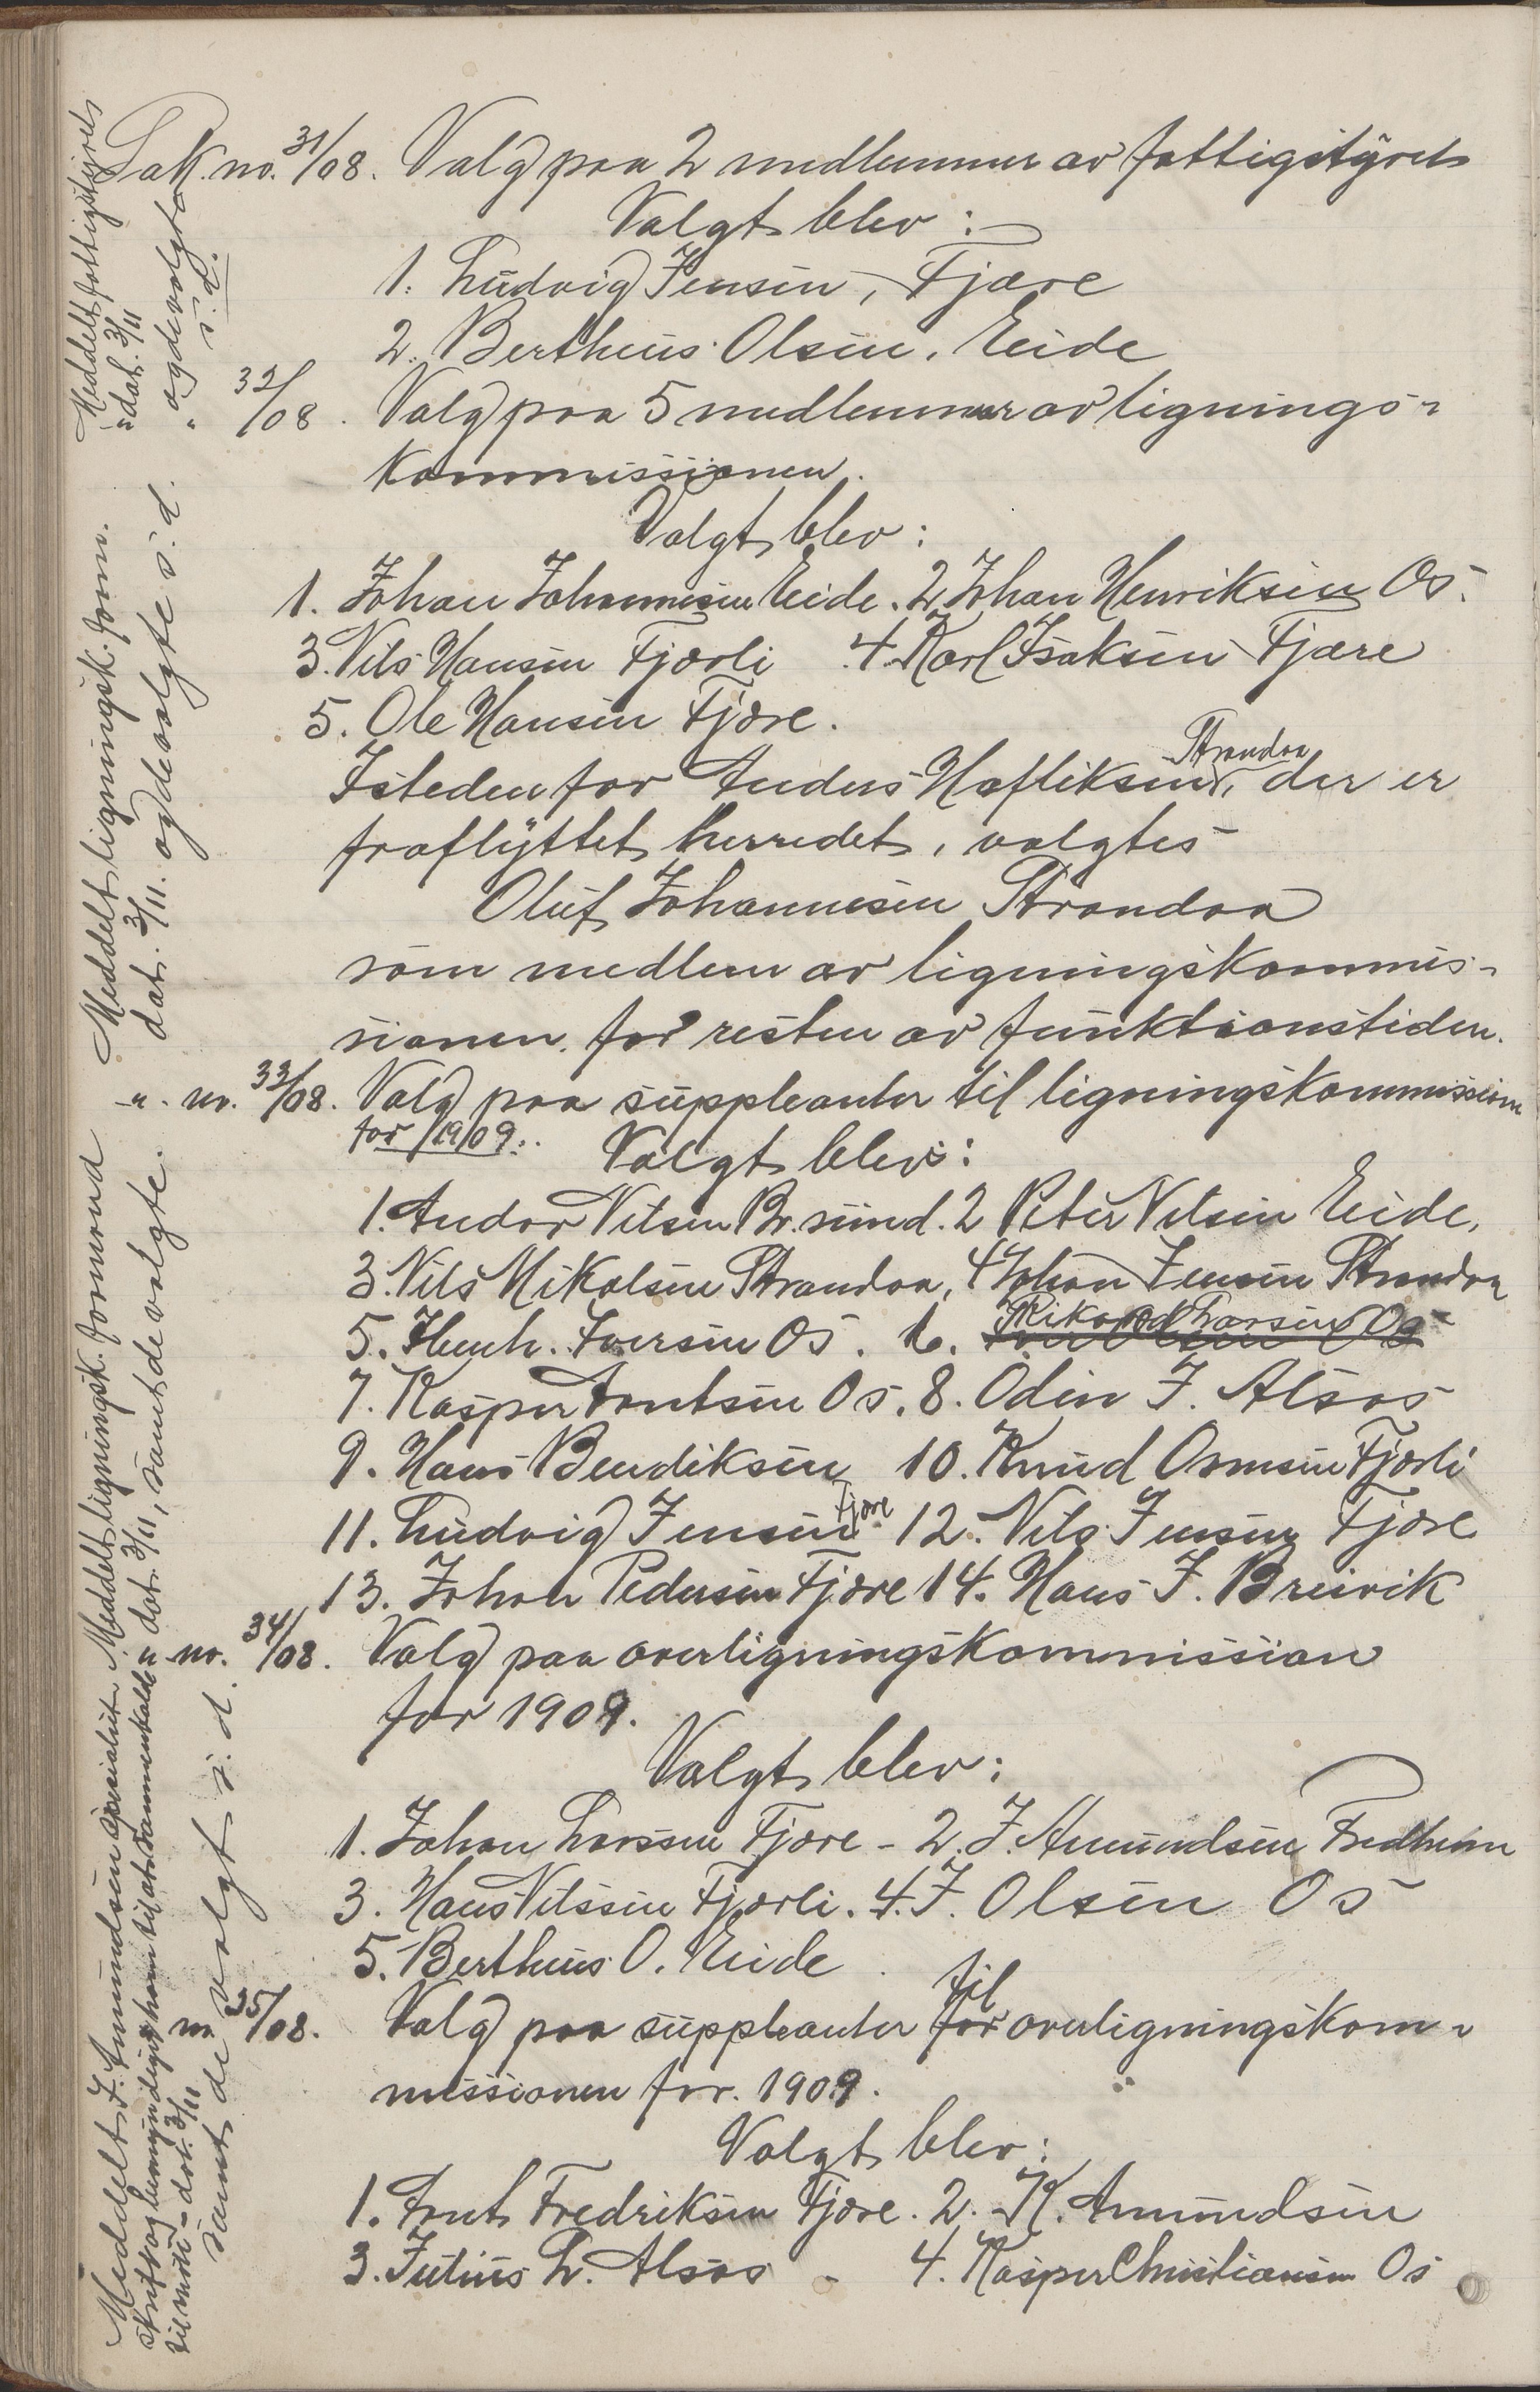 Sak no. 31/08. Valg paa 2 medlemmer av fattigstyret
Valgt blev:
1. Ludvig Jensen, Fjære
2. Bertheus Olsen, Eide
" 32/08. Valg paa 5 medlemmer av lignings-
kommissionen.
Valgt blev:
1. Johan Johannesen Eide. 2 Johan Henriksen Os.
3. Nils Hansen Fjærli 4. Karl Isaksen Fjære
5. Ole Hansen Fjære.
Isteden for Anders Hafliksen Strandaa, der er
fraflyttet herredet, valgtes
Oluf Johannesen Strandaa
som medlem av ligningskommis-
sionen for resten av funktionstiden.
" no. 33/08. Valg paa suppleanter til ligningskommission
for 1909.
Valgt blev:
1. Andor Nilsen Br.sund. 2 Peter Nilsen Eide,
3. Nils Mikalsen Strandaa, 4 Johan Jensen Strandaa
5. Henh. Iversen Os. 6. Rikard Larsen Os
7. Kasper Arntsen Os. 8. Odin J. Alsos
9. Hans Bendiksen 10. Knud Osmsen Fjærli
11. Ludvig Jensen Fjære 12. Nils Jensen Fjære
13. Johan Pedersen Fjære 14. Hans J. Breivik
" no. 34/08. Valg paa overligningskommission
for 1909.
Valgt blev:
1. Johan Larssen Fjære - 2. J. Amundsen Fredheim
3. Hans Nilssen Fjærli. 4. J. Olsen Os
5. Bertheus O. Eide
no 35/08. Valg paa suppleanter for til overligningskom-
missionen for 1909.
Valgt blev:
1. Arnt Fredriksen Fjære. 2. K. Amundsen
3. Julius L. Alsos - 4. Kasper Christiansen Os
Meddelt fattigstyrets
" dat. 3/11
" og de valgte
s. d.
Meddelt ligningsk. form.
dat. 3/11. og de valgte s. d.
Meddelt ligningsk. formand
" dat. 3/11, samt de valgte.
Meddelt J. Amundsen specialut
skrift og bemyndiget ham til at sammenkalde
til møte - dat. 3/11
samt de valgt s. d.